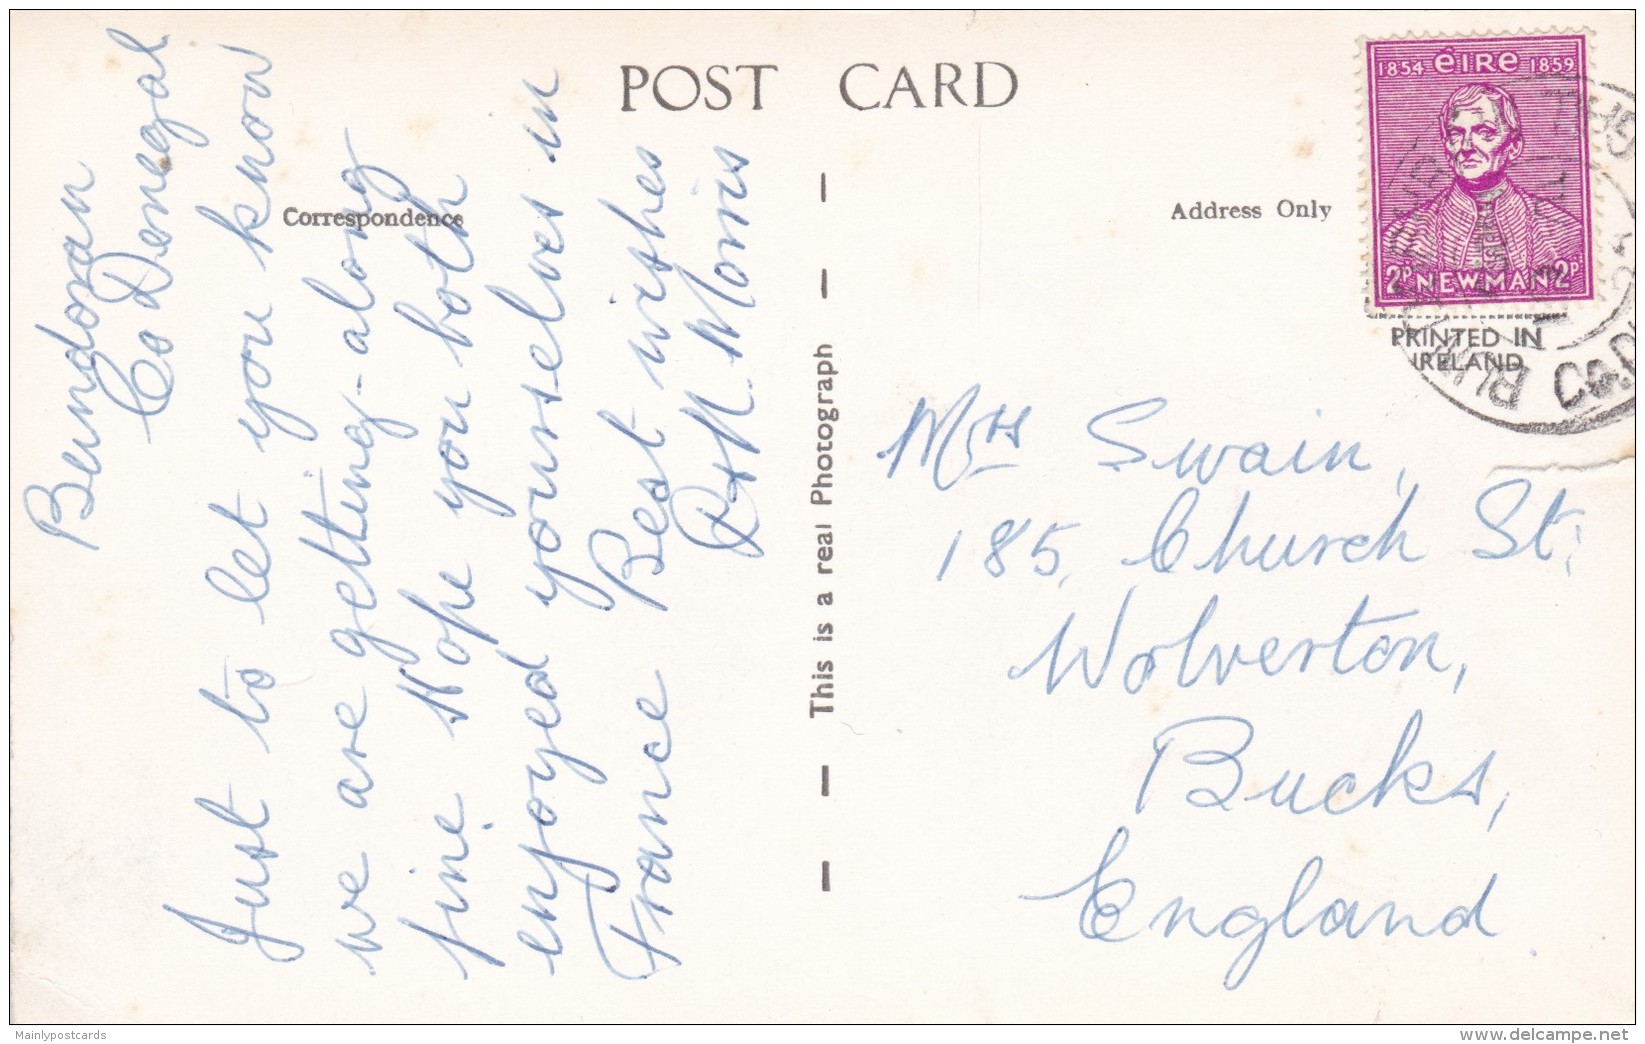 POST CARD
Correspondence
Address Only
Bundoran
Co Donegal
Just to let you know
we are getting along
fine. Hope you both
enjoyed yourselves in
France Best wishes
Morris
This is a real Photograph
1854 éire 1859
2p NEWMAN 2p
PRINTED IN
IRELAND
Mrs Swain,
185, Church St.
Wolverton,
Bucks,
England.
Mainlypostcards
delcampe.net